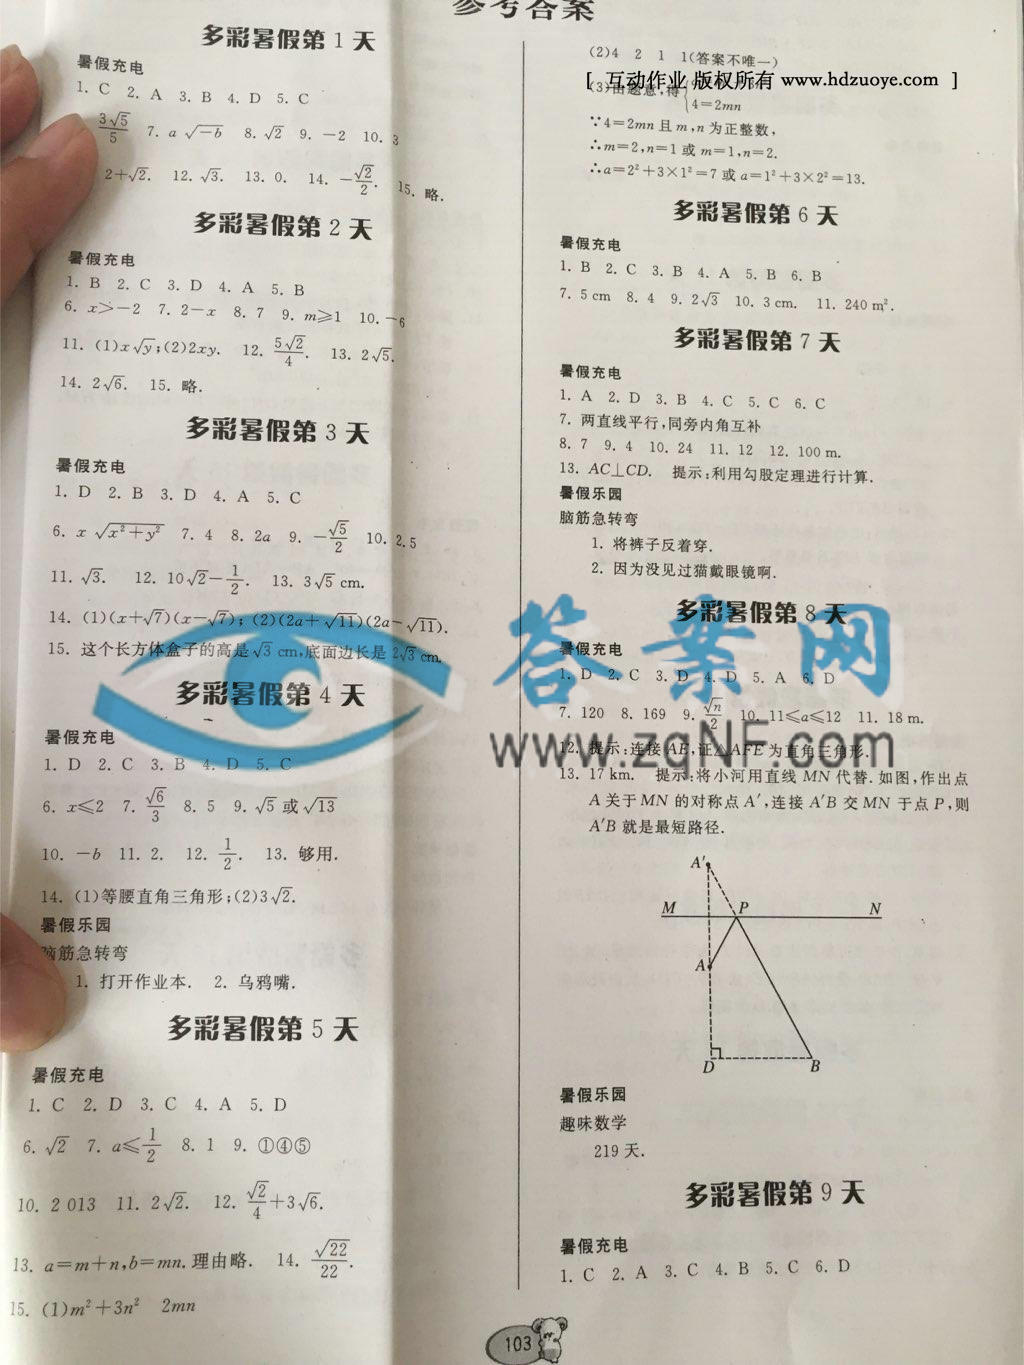 参考答案
多彩暑假第 1 天
暑假充电
1. C 2. A 3. B 4. D 5. C
3√5/5 7. a√-b 8. √2 9. -2 10. 3
2+√2. 12. √3. 13. 0. 14. -√2/2. 15. 略.
多彩暑假第 2 天
暑假充电
1. B 2. C 3. D 4. A 5. B
6. x>-2 7. 2-x 8. 7 9. m≥1 10. -6
11. (1)x√y;(2)2xy. 12. 5√2/4. 13. 2√5.
14. 2√6. 15. 略.
多彩暑假第 3 天
暑假充电
1. D 2. B 3. D 4. A 5. C
6. x√x²+y² 7. 4 8. 2a 9. -√5/2 10. 2.5
11. √3. 12. 10√2-1/2. 13. 3√5 cm.
14. (1)(x+√7)(x-√7); (2)(2a+√11)(2a-√11).
15. 这个长方体盒子的高是√3 cm,底面边长是 2√3 cm.
多彩暑假第 4 天
暑假充电
1. D 2. C 3. B 4. D 5. C
6. x≤2 7. √6/3 8. 5 9. √5 或 √13
10. -b 11. 2. 12. 1/2. 13. 够用.
14. (1)等腰直角三角形;(2)3√2.
暑假乐园
脑筋急转弯
1. 打开作业本. 2. 乌鸦嘴.
多彩暑假第 5 天
暑假充电
1. C 2. D 3. C 4. A 5. D
6. √2 7. a≤1/2 8. 1 9. ①④⑤
10. 2 013 11. 2√2. 12. √2/4+3√6.
13. a=m+n,b=mn. 理由略. 14. √22/22.
15. (1)m²+3n² 2mn
(2)4 2 1 1(答案不唯一)
[ 互动作业 版权所有 www.hdzuoye.com ]
(3)由题意,得
4=2mn
∵4=2mn 且 m,n 为正整数,
∴m=2,n=1 或 m=1,n=2.
∴a=2²+3×1²=7 或 a=1²+3×2²=13.
多彩暑假第 6 天
暑假充电
1. B 2. C 3. B 4. A 5. B 6. B
7. 5 cm 8. 4 9. 2√3 10. 3 cm. 11. 240 m².
多彩暑假第 7 天
暑假充电
1. A 2. D 3. B 4. C 5. C 6. C
7. 两直线平行,同旁内角互补
8. 7 9. 4 10. 24 11. 12 12. 100 m.
13. AC⊥CD. 提示:利用勾股定理进行计算.
暑假乐园
脑筋急转弯
1. 将裤子反着穿.
2. 因为没见过猫戴眼镜啊.
多彩暑假第 8 天
暑假充电
答案网
1. D 2. C 3. D 4. D 5. A 6. D
7. 120 8. 169 9. √n/2 10. 11≤a≤12 11. 18 m.
www.zqNF.com
12. 提示:连接 AE,证△AFE 为直角三角形.
13. 17 km. 提示:将小河用直线 MN 代替.如图,作出点
A 关于 MN 的对称点 A′,连接 A′B 交 MN 于点 P,则
A′B 就是最短路径.
A′
M P N
A
D B
暑假乐园
趣味数学
219 天.
多彩暑假第 9 天
暑假充电
1. C 2. A 3. C 4. B 5. C 6. D
103